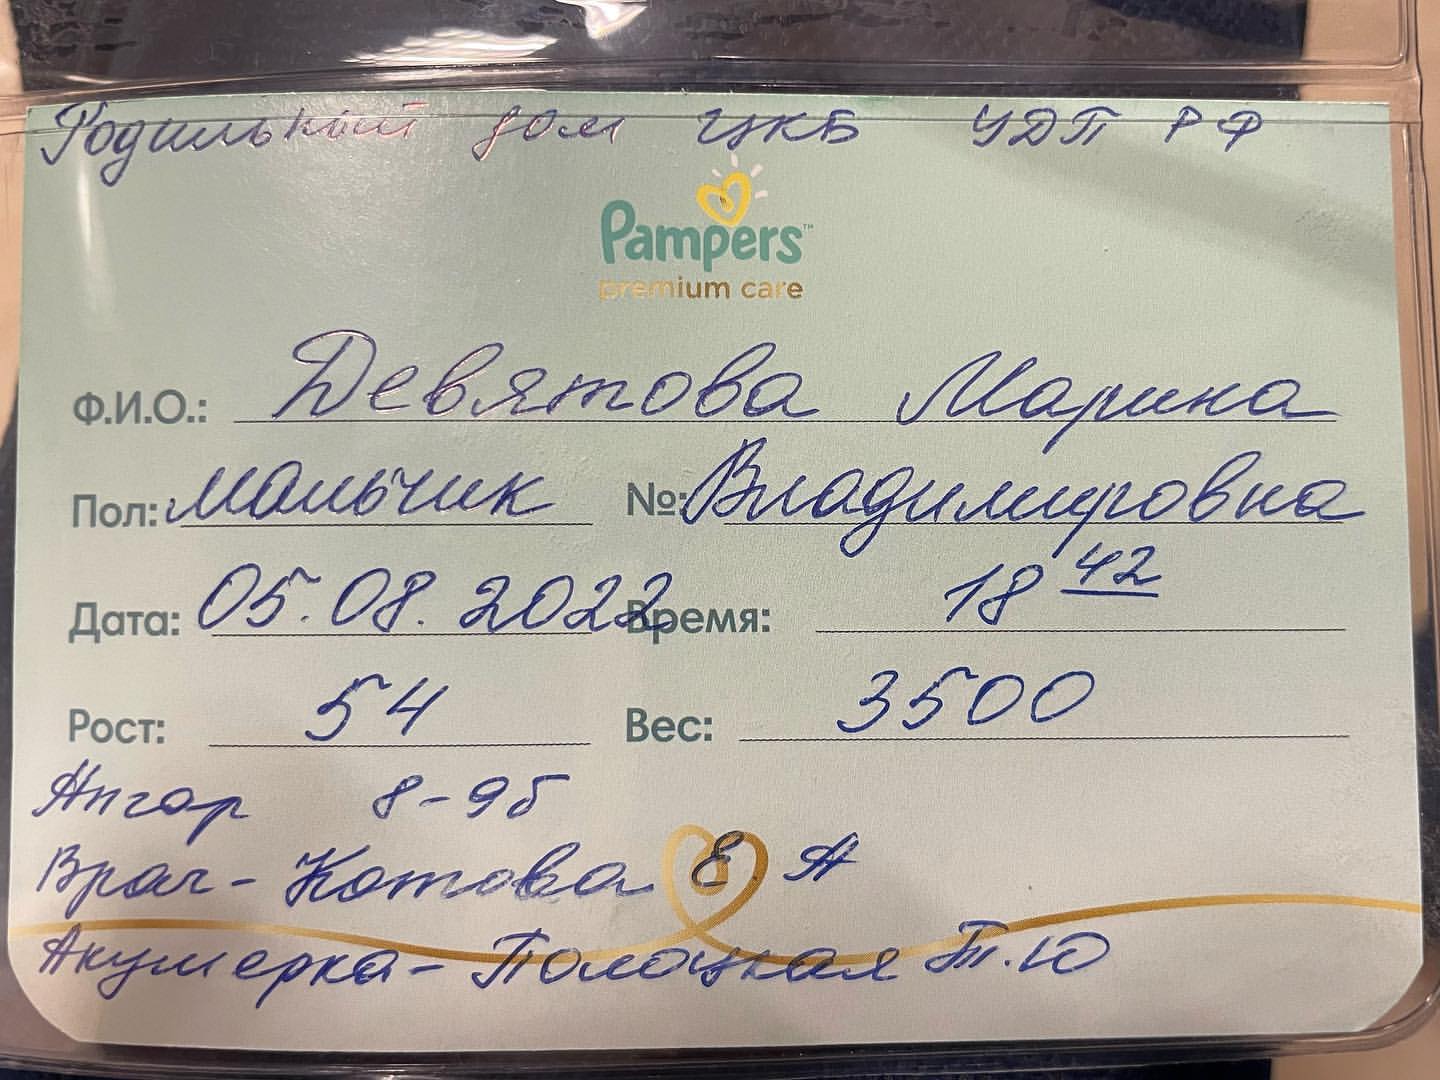 Родильный дом ЦКБ УДП РФ
Pampers™
premium care
Ф.И.О.: Девятова Марина
Пол: мальчик №: Владимировна
Дата: 05.08.2022 Время: 18 42
Рост: 54 Вес: 3500
Апгар 8-9б
Врач- Котова Е. А
Акушерка- Полоцкая Т.Ю